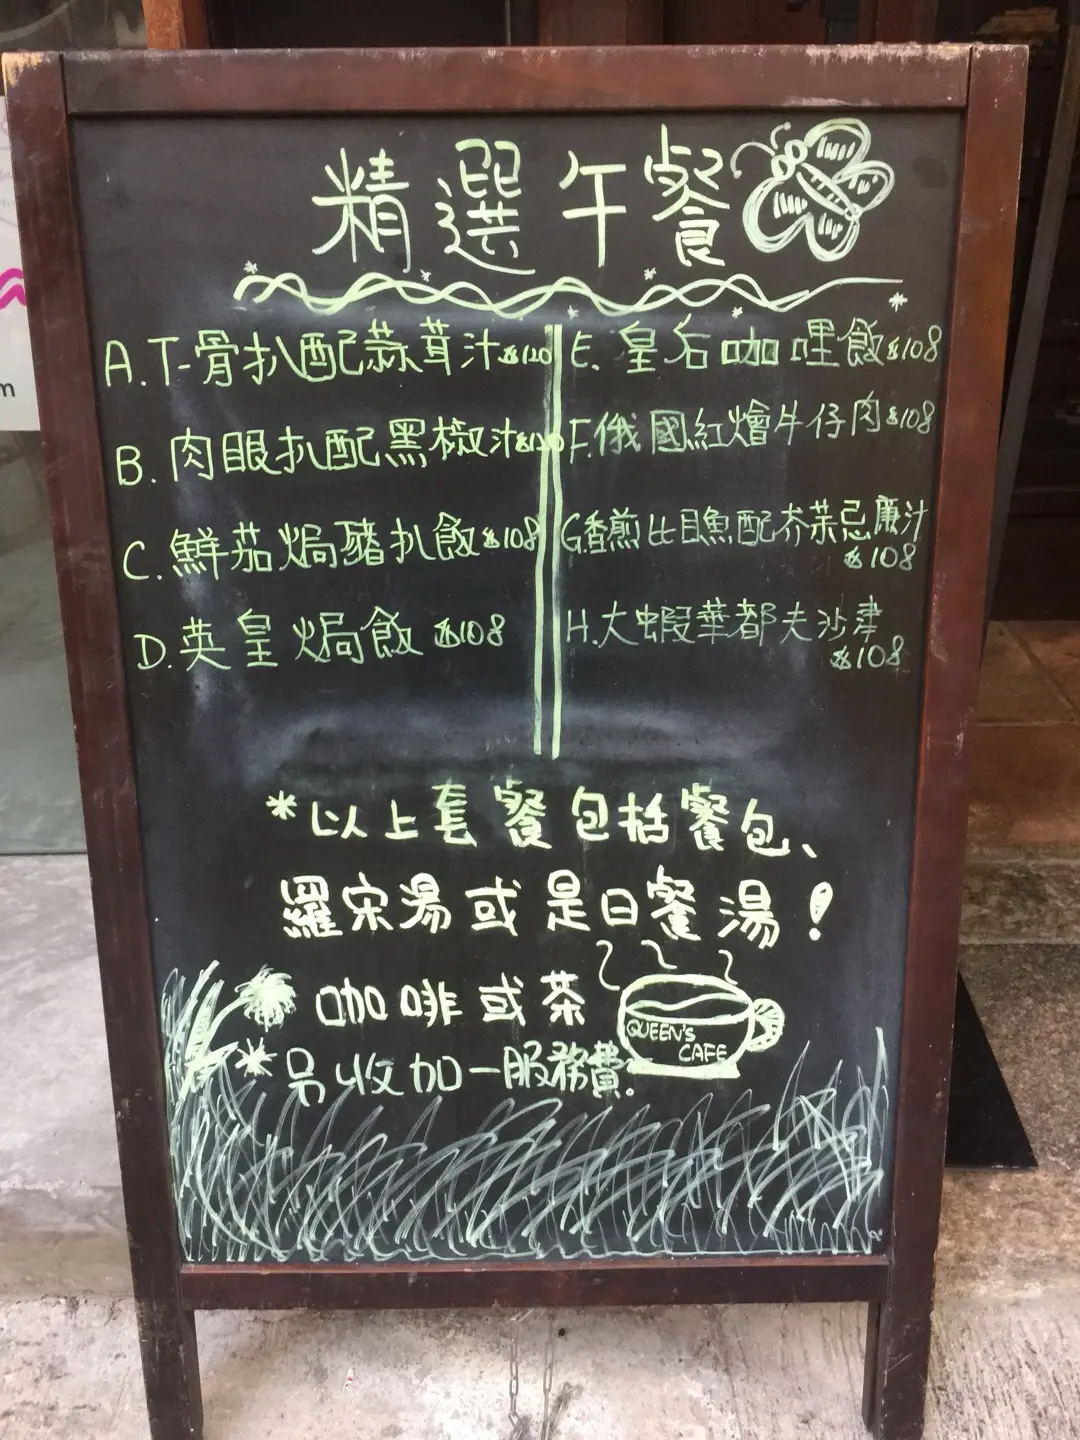 精選午餐
A.T-骨扒配蒜茸汁$120
B.肉眼扒配黑椒汁$120
C.鮮茄焗豬扒飯$108
D.英皇焗飯$108
E.皇后咖哩飯$108
F.俄國紅燴牛仔肉$108
G.香煎比目魚配夯茶忌廉汁
$108
H.大蝦華都夫沙律
$108
*以上套餐包括餐包、
羅宋湯或是日餐湯!
咖啡或茶
*另收加一服務費.
QUEEN'S
CAFE
m